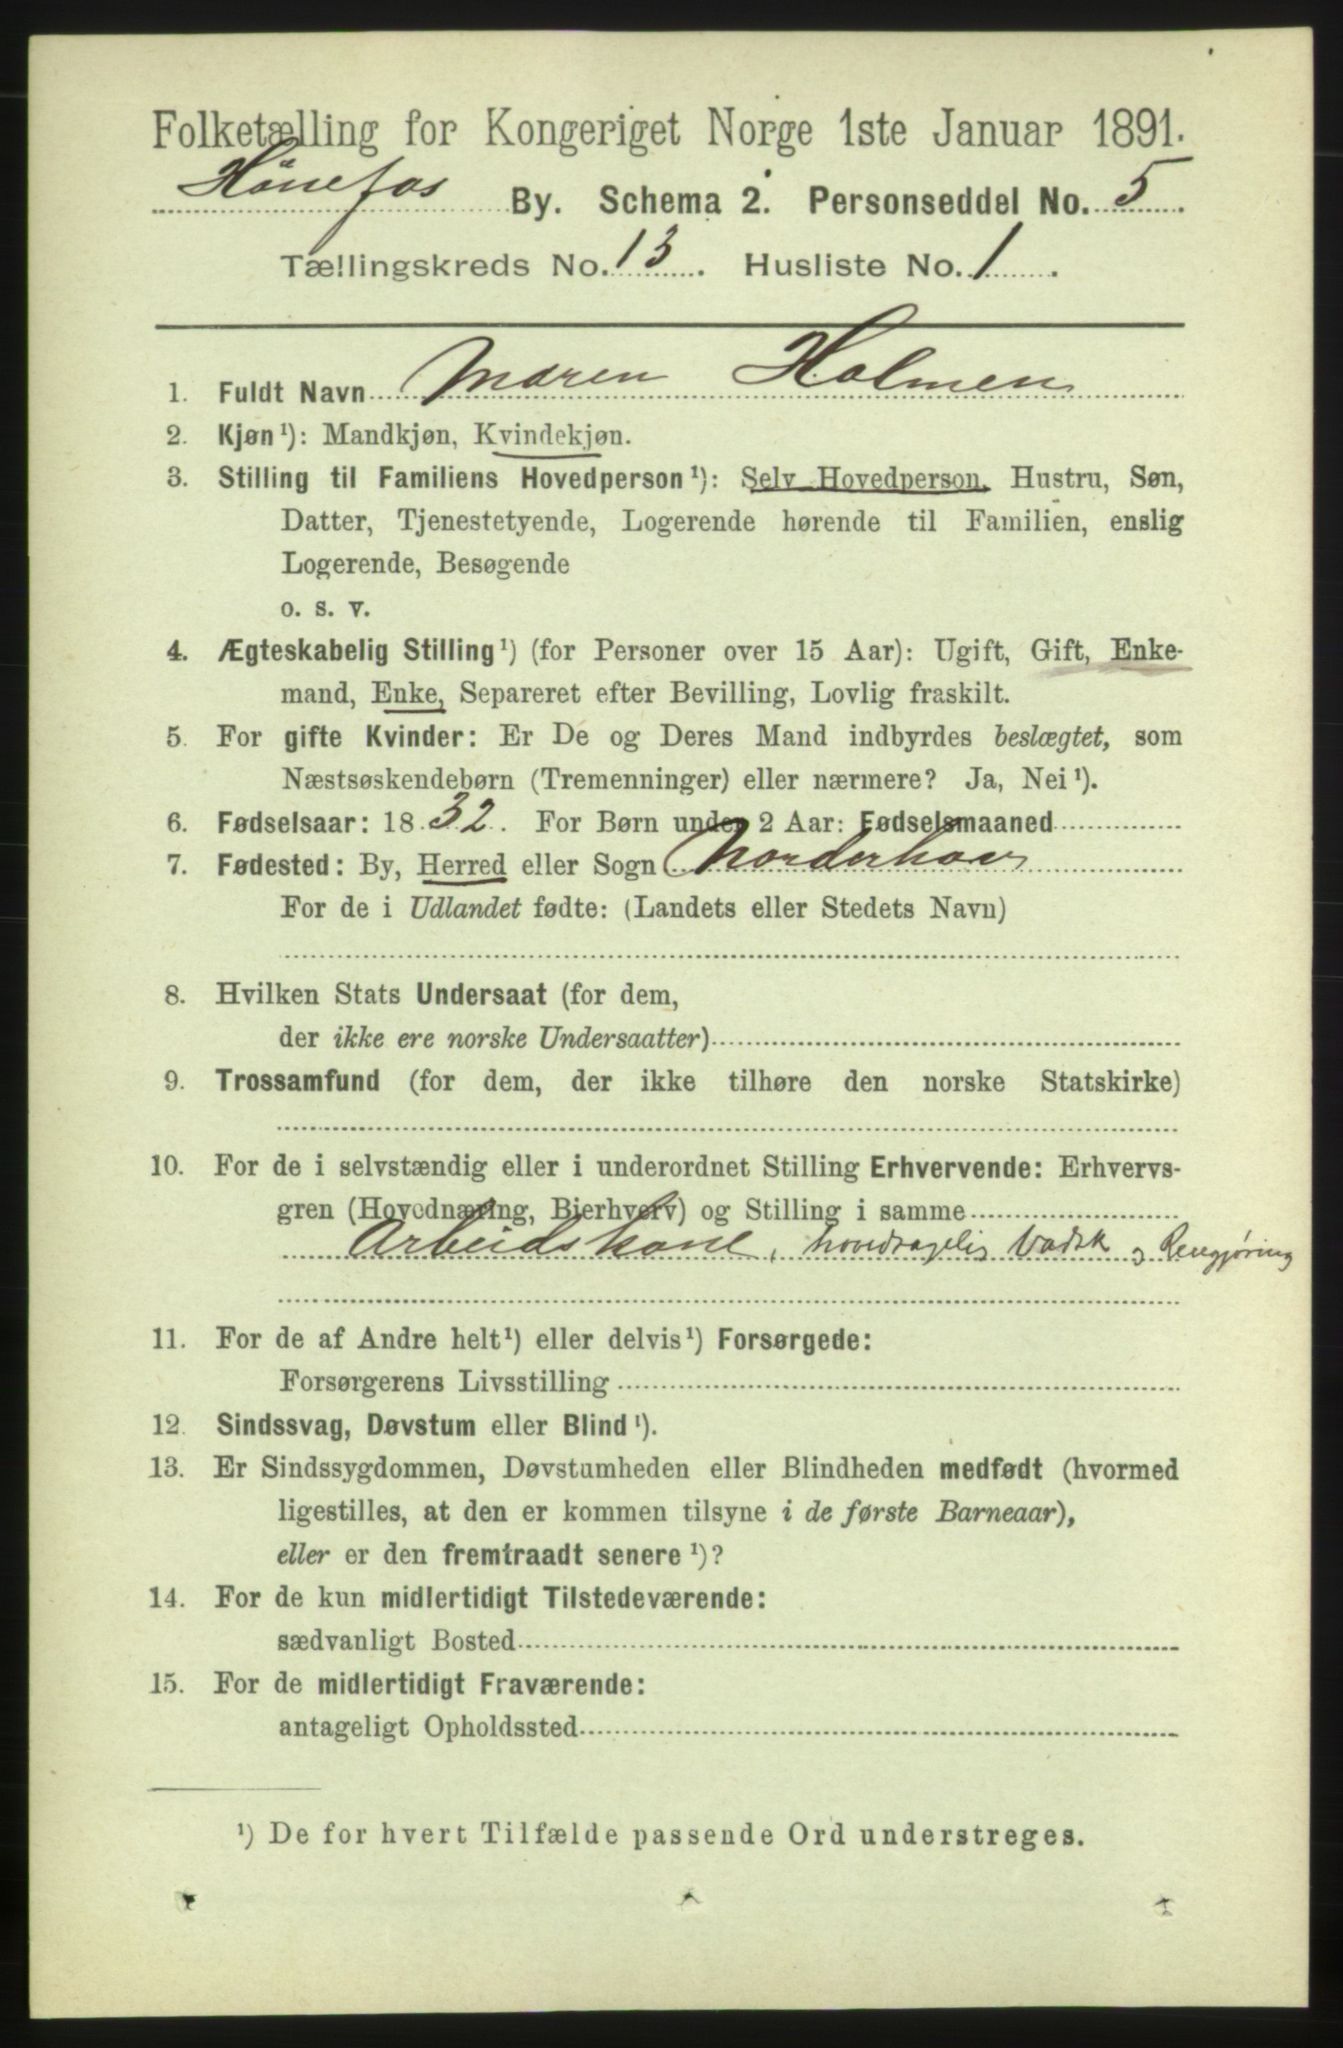 Folketælling for Kongeriget Norge 1ste Januar 1891.
Hønefos By. Schema 2. Personseddel No. 5.
Tællingskreds No. 13. Husliste No. 1.
1. Fuldt Navn Maren Holmen
2. Kjøn ¹): Mandkjøn, Kvindekjøn.
3. Stilling til Familiens Hovedperson ¹): Selv Hovedperson, Hustru, Søn,
Datter, Tjenestetyende, Logerende hørende til Familien, enslig
Logerende, Besøgende
o. s. v.
4. Ægteskabelig Stilling ¹) (for Personer over 15 Aar): Ugift, Gift, Enke-
mand, Enke, Separeret efter Bevilling, Lovlig fraskilt.
5. For gifte Kvinder: Er De og Deres Mand indbyrdes beslægtet, som
Næstsøskendebørn (Tremenninger) eller nærmere? Ja, Nei ¹).
6. Fødselsaar: 1832. For Børn under 2 Aar: Fødselsmaaned
7. Fødested: By, Herred eller Sogn Norderhov
For de i Udlandet fødte: (Landets eller Stedets Navn)
8. Hvilken Stats Undersaat (for dem,
der ikke ere norske Undersaatter)
9. Trossamfund (for dem, der ikke tilhøre den norske Statskirke)
10. For de i selvstændig eller i underordnet Stilling Erhvervende: Erhvervs-
gren (Hovednæring, Bierhverv) og Stilling i samme
Arbeidskone, hovedsagelig Vadsk og Rengjøring
11. For de af Andre helt ¹) eller delvis ¹) Forsørgede:
Forsørgerens Livsstilling
12. Sindssvag, Døvstum eller Blind ¹).
13. Er Sindssygdommen, Døvstumheden eller Blindheden medfødt (hvormed
ligestilles, at den er kommen tilsyne i de første Barneaar),
eller er den fremtraadt senere ¹)?
14. For de kun midlertidigt Tilstedeværende:
sædvanligt Bosted
15. For de midlertidigt Fraværende:
antageligt Opholdssted
¹) De for hvert Tilfælde passende Ord understreges.